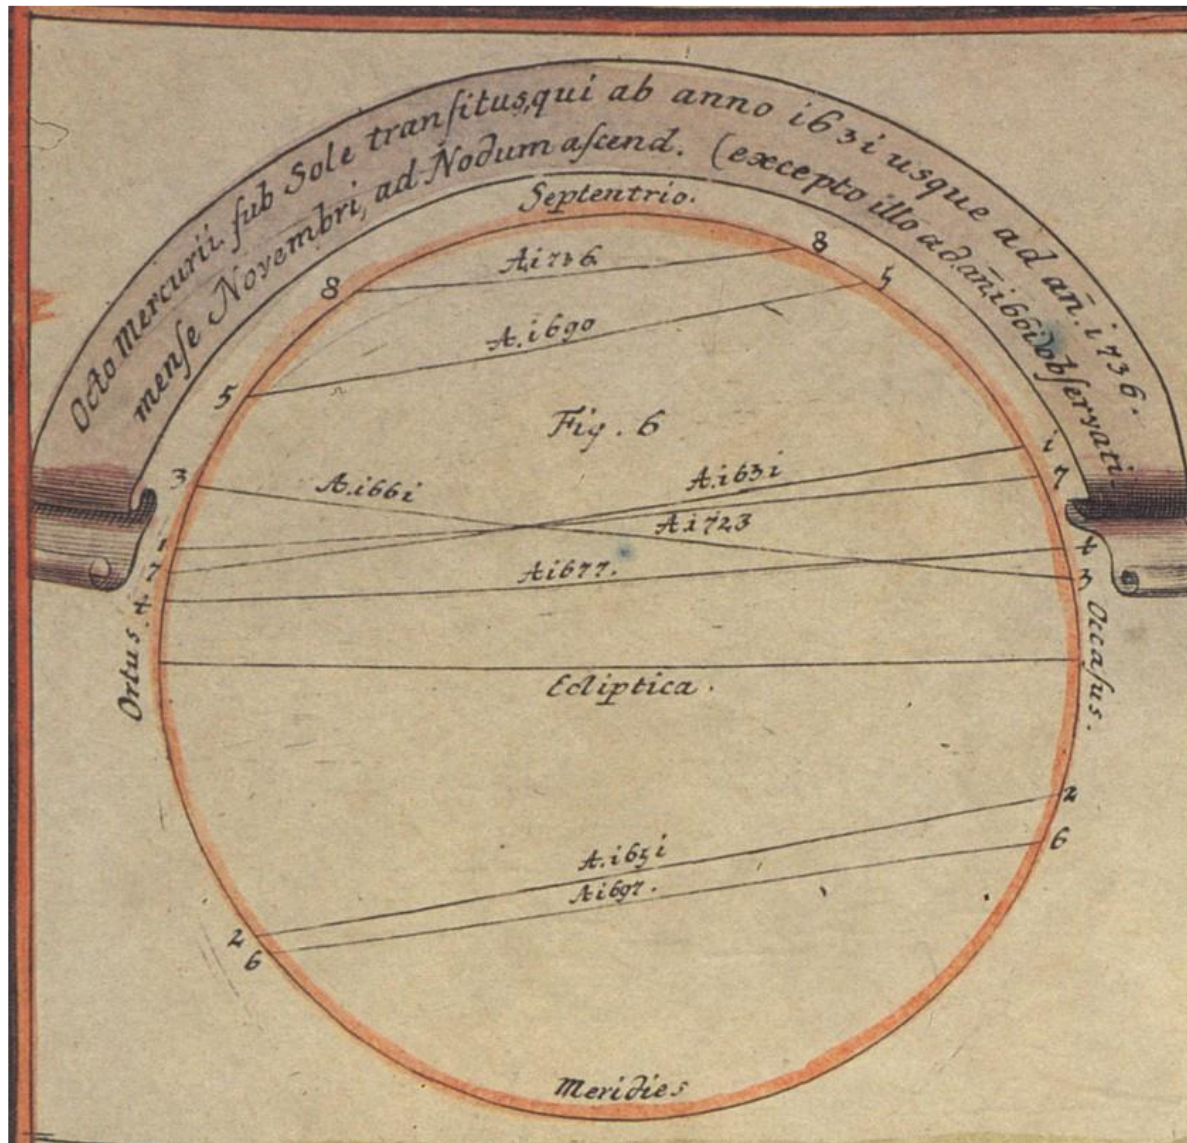 Octo Mercurii sub Sole tranſitus, qui ab anno i63i usque ad añ. i736.
menſe Novembri, ad Nodum aſcend. (excepto illo ad añ. i66i) obſervati.
Septentrio.
8 A. i736. 8
5 A. i690 5
Fig. 6
3 A. i66i A. i63i i
7
A i723
1
7 4
A i677. 3
4
Ortus. Occaſus.
Ecliptica.
2
A. i65i 6
A i697.
2
6
Meridies